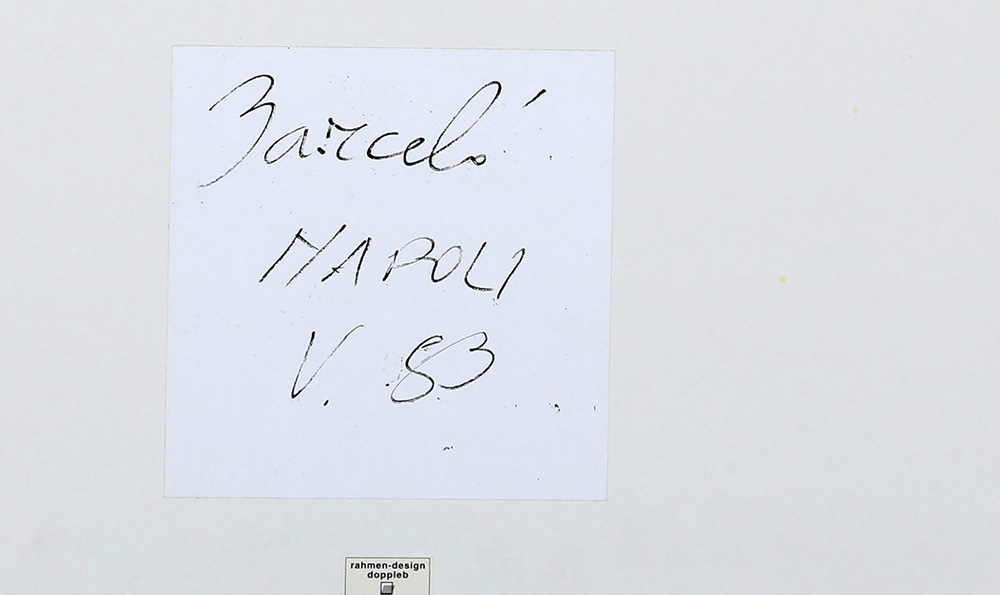 Barceló
NAPOLI
V. 83
rahmen-design
doppleb